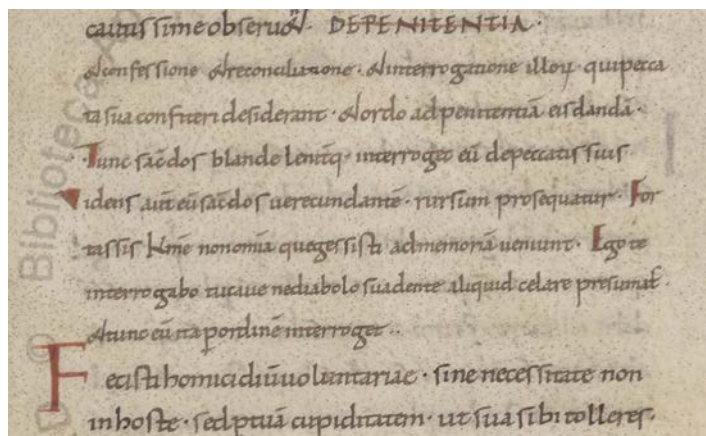 cautissime obseruań. DE PENITENTIA·
& confessione & reconciliatione· & interrogatione illoꝝ qui pecca
ta sua confiteri desiderant· & ordo ad penitentiā eis dandā·
Tunc sac̄dos blande lenit̄q; interroget eū de peccatis suis
Videns aut̄ eū sac̄dos uerecundantē· rursum prosequatur· For
tassis kmē non om̄ia que gessisti ad memoriā ueniunt· Ego te
interrogabo tu caue ne diabolo suadente aliquid celare presumaſ.
& tunc eū ita ꝑ ordinē interroget..
Fecisti homicidiū uoluntariae· sine necessitate non
in hoste· sed ꝓ tuā cupiditatem· ut sua sibi tolleres·
Bibliotec